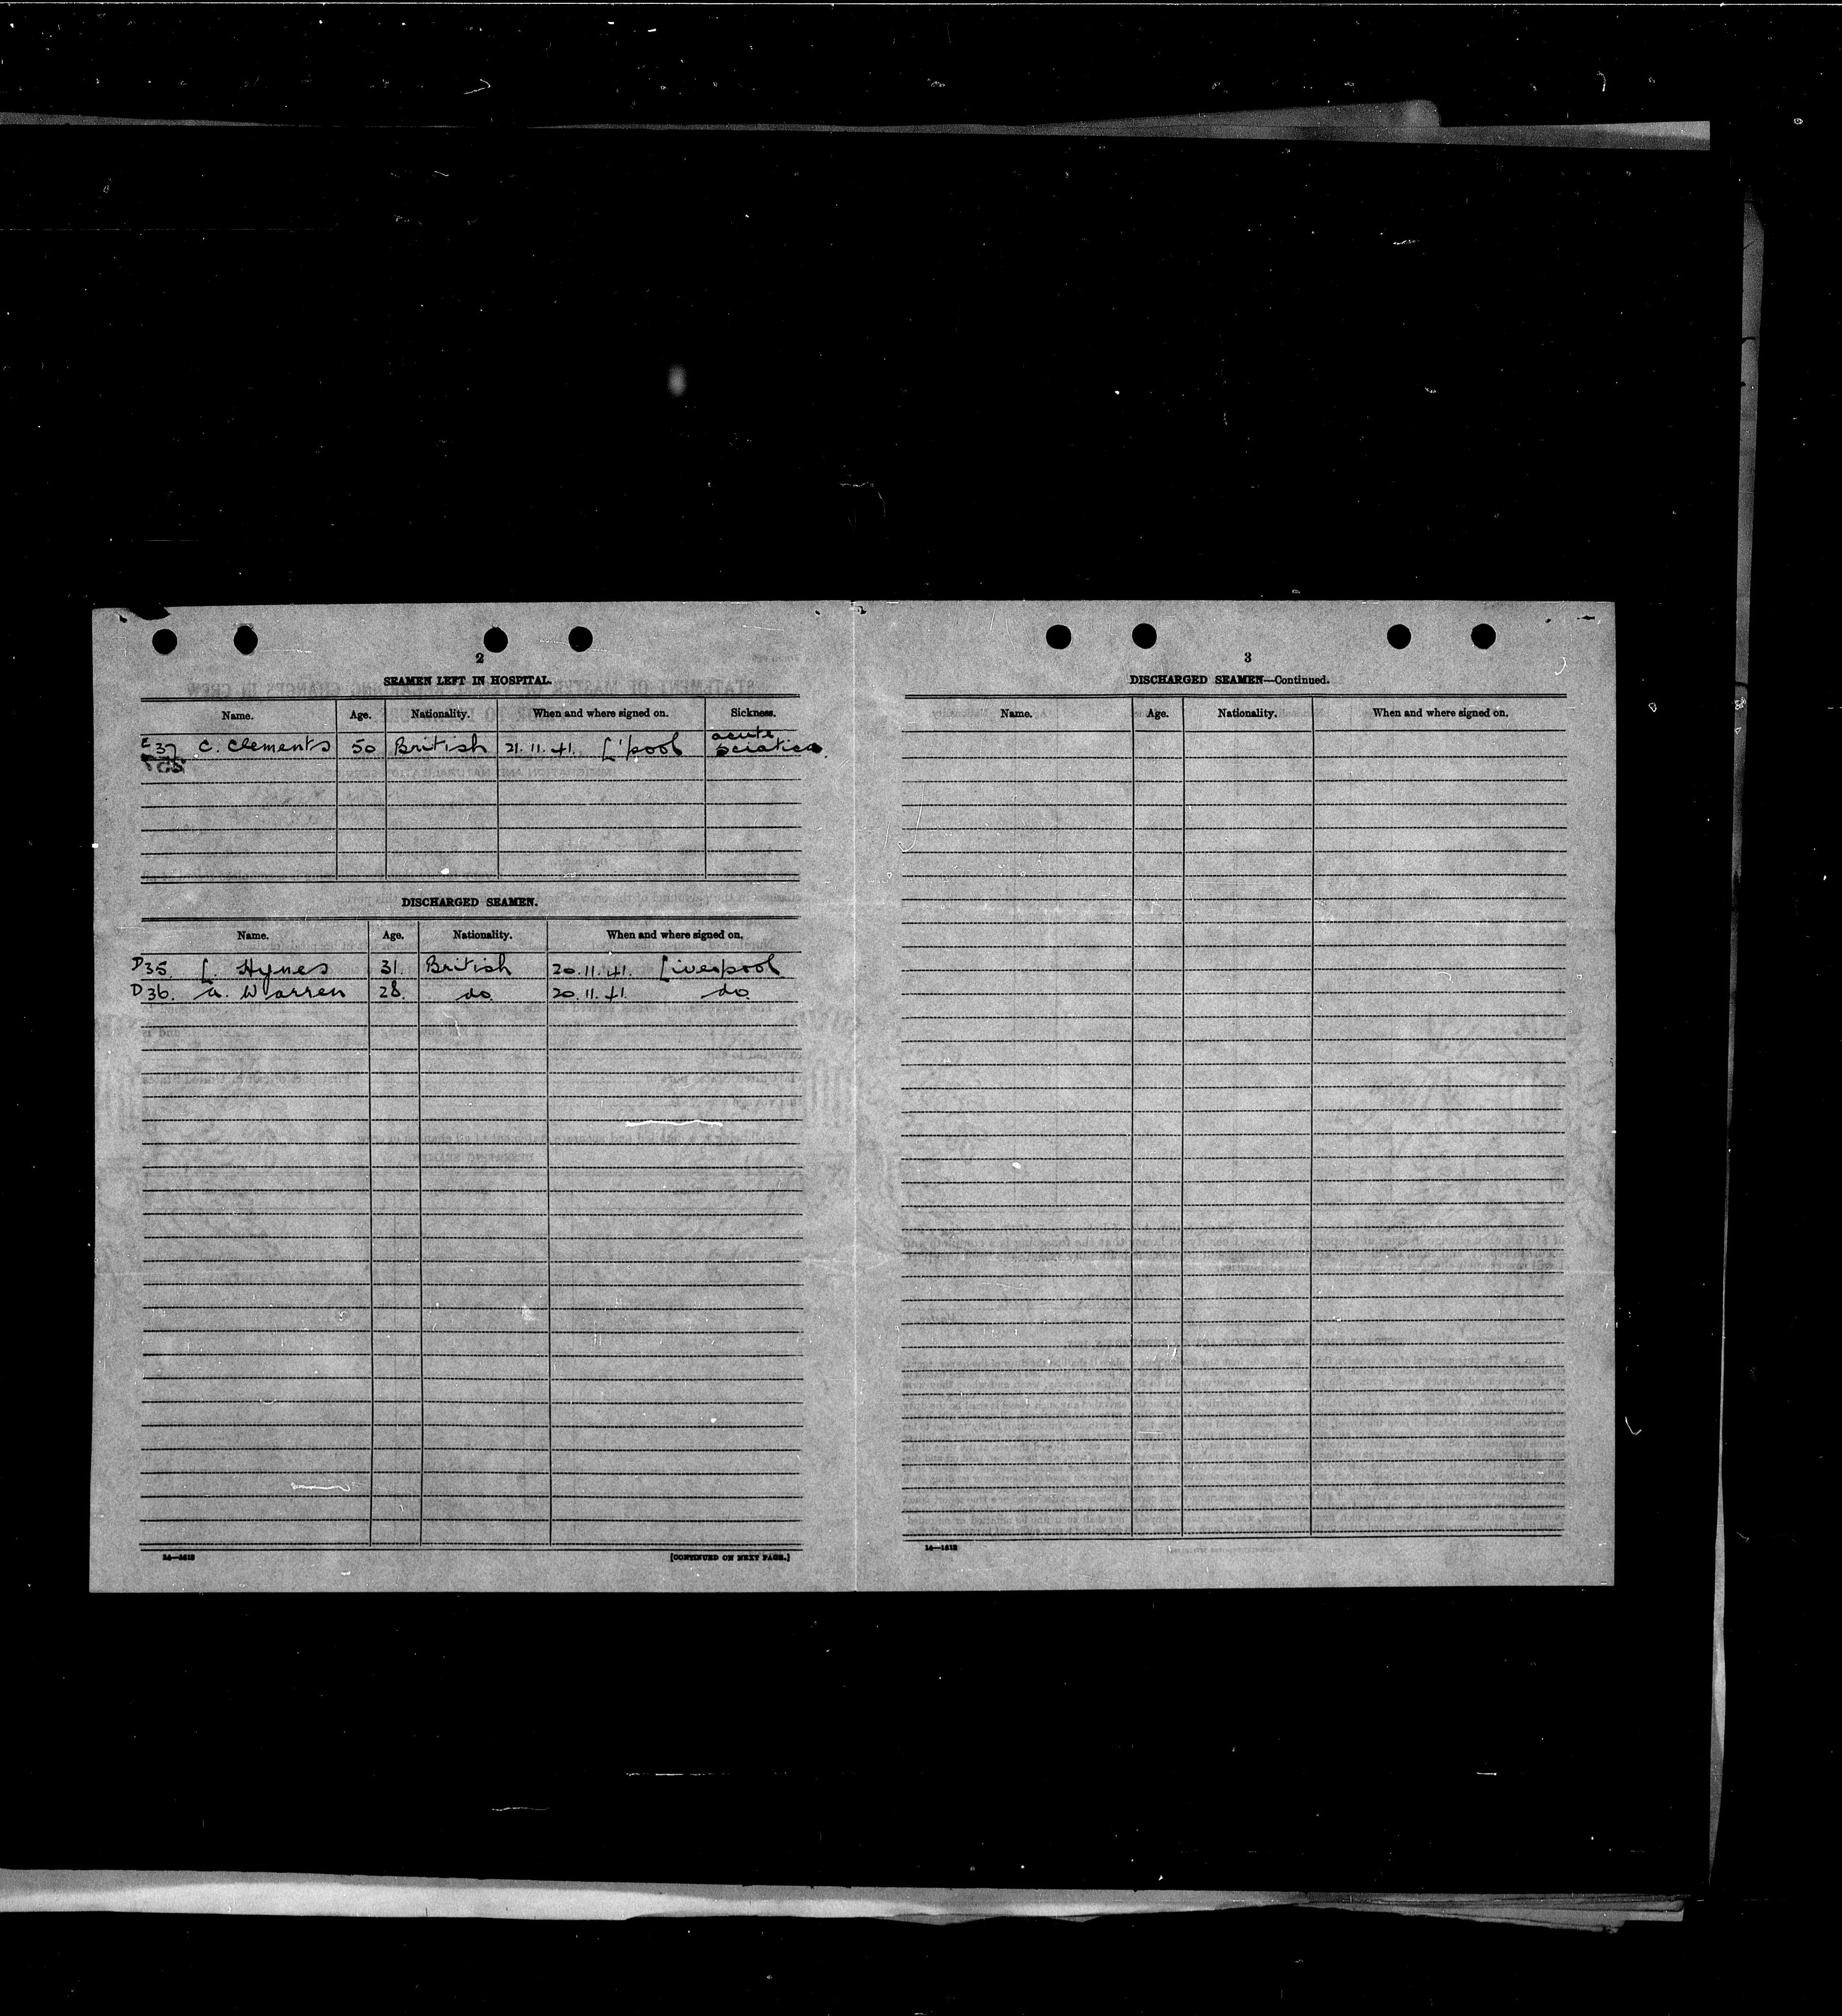 2
SEAMEN LEFT IN HOSPITAL.
Name. Age. Nationality. When and where signed on. Sickness.
E37 C. Clements 50 British 21.11.41. L'pool acute sciatica.
DISCHARGED SEAMEN.
Name. Age. Nationality. When and where signed on.
D35. L. Hynes 31. British 20.11.41. Liverpool
D36. A. Warren 28. do 20.11.41. do
14—1612 [CONTINUED ON NEXT PAGE.]
3
DISCHARGED SEAMEN—Continued.
Name. Age. Nationality. When and where signed on.
14—1612